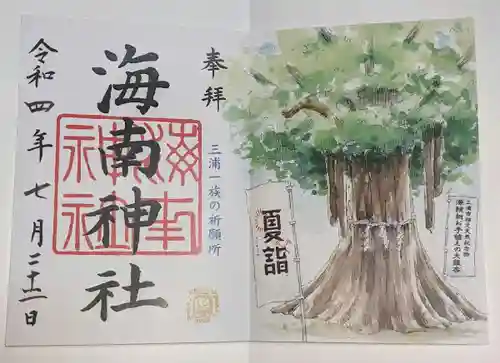 三浦市指定天然記念物
源頼朝お手植えの大銀杏
夏詣
奉拝
三浦一族の祈願所
海南神社
海南神社
令和四年七月二十一日